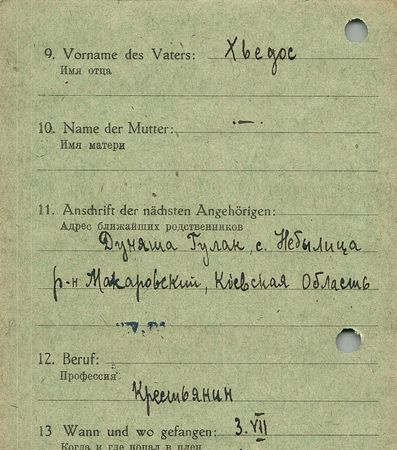 9. Vorname des Vaters: Хведос
Имя отца
10. Name der Mutter: —
Имя матери
11. Anschrift der nächsten Angehörigen:
Адрес ближайших родственников
Дуняша Гулак, с. Небылица
р-н Макаровский, Киевская Область
12. Beruf:
Профессия
Крестьянин
13 Wann und wo gefangen: 3. VII
Когда и где попал в плен